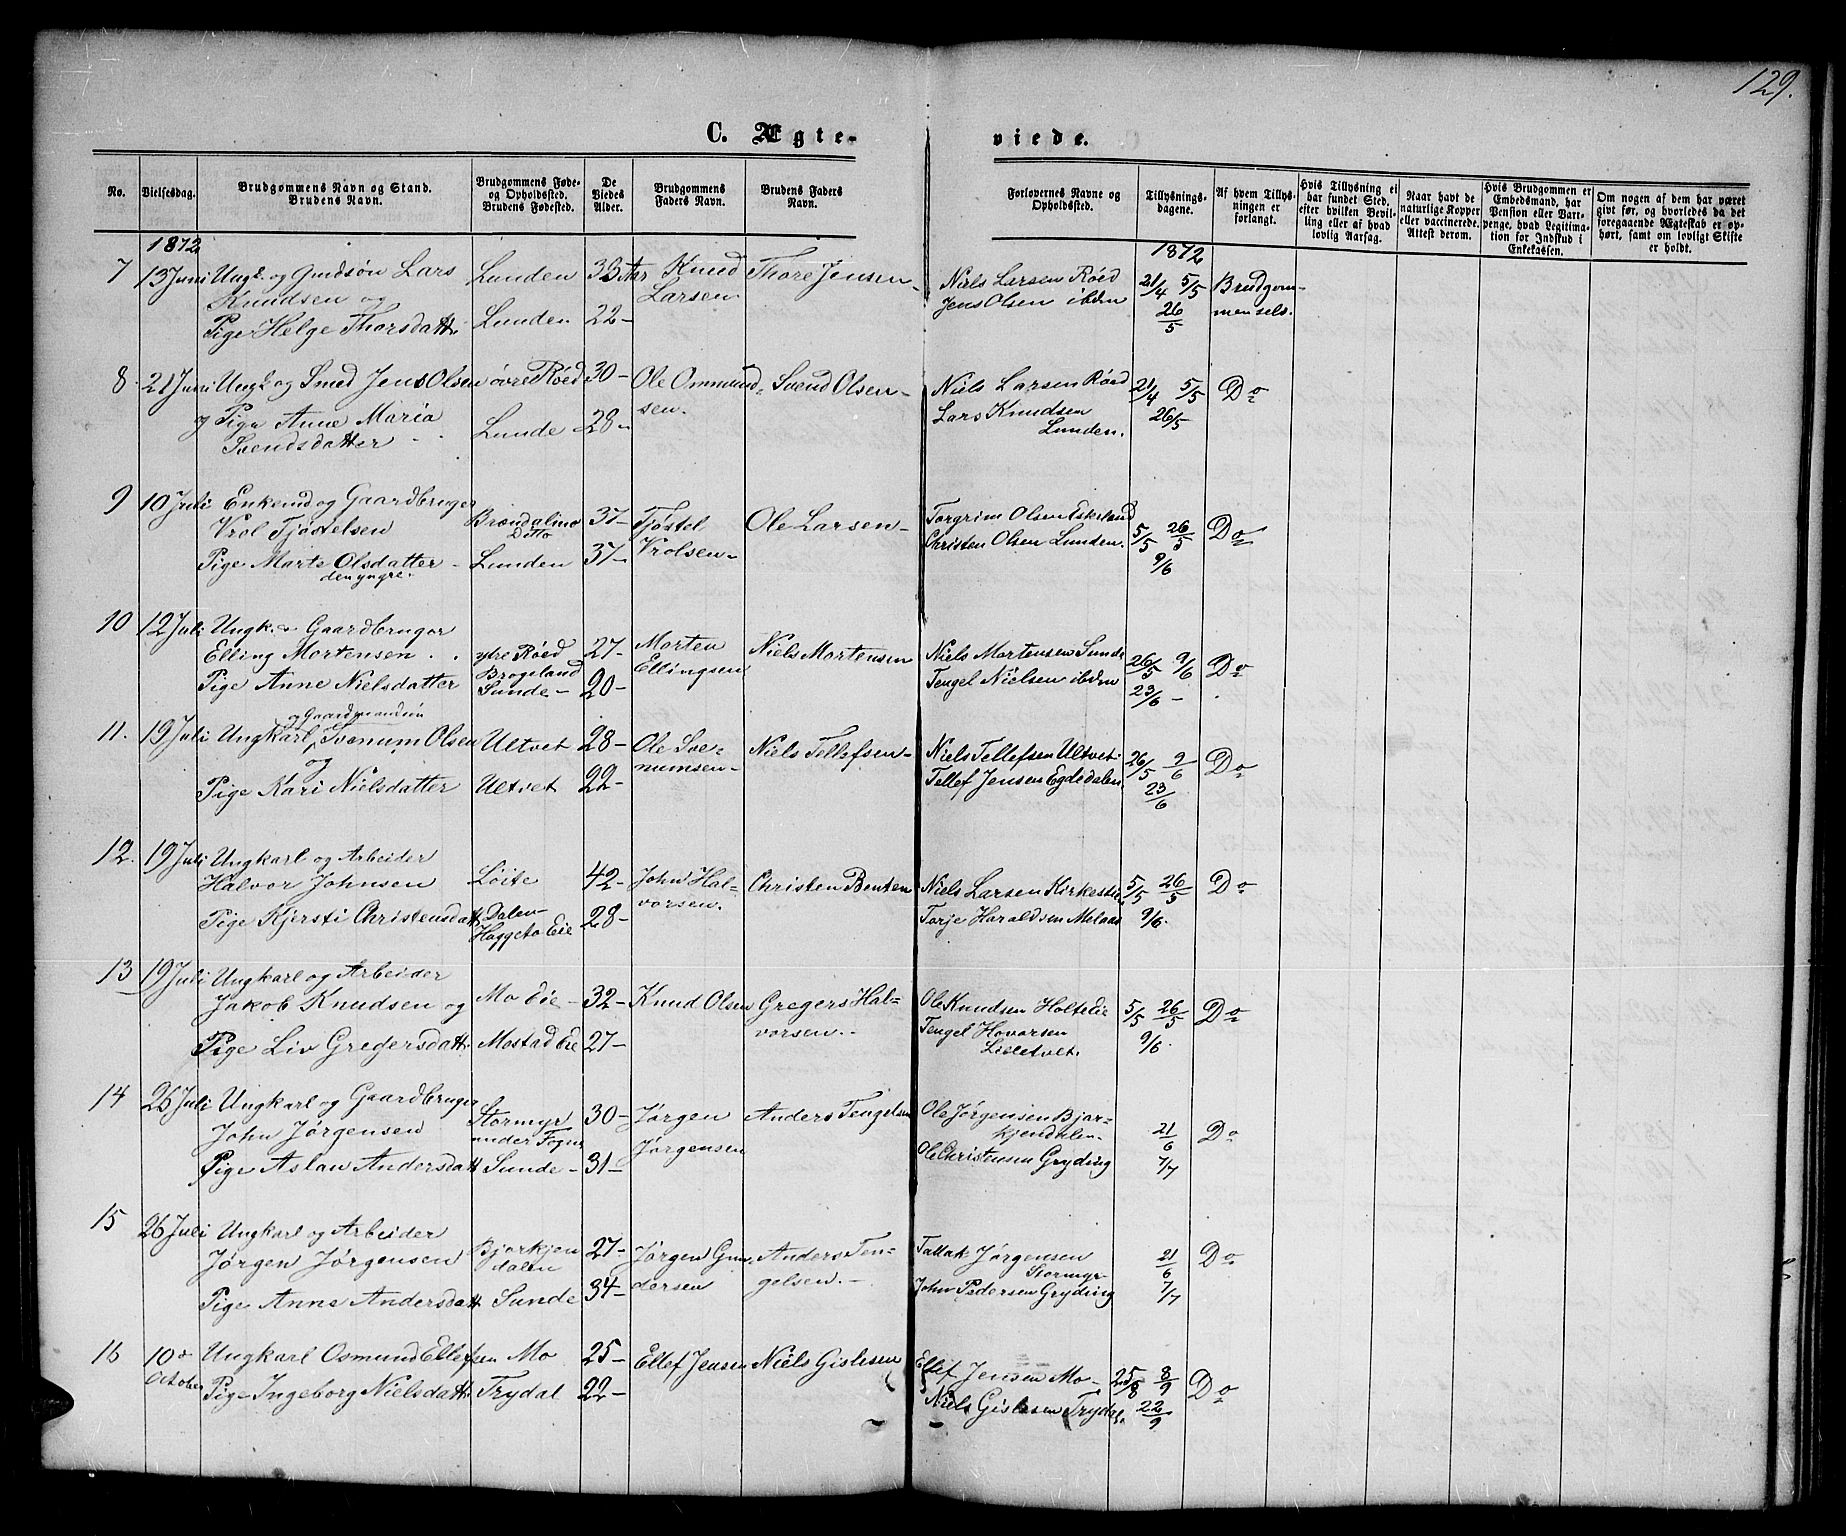 129.
C. Ægte- viede.
No.
Vielsesdag.
Brudgommens Navn og Stand.
Brudens Navn.
Brudgommens Føde-
og Opholdsted.
Brudens Fødested.
De
Viedes
Alder.
Brudgommens
Faders Navn.
Brudens Faders
Navn.
Forlovernes Navne og
Opholdsted.
Tillysnings-
dagene.
Af hvem Tillys-
ningen er
forlangt.
Hvis Tillysning ei
har fundet Sted,
efter hvilken Bevil-
ling eller af hvad
lovlig Aarsag.
Naar havt de
naturlige Kopper
eller vaccinerede.
Attest derom.
Hvis Brudgommen er
Embedsmand, har
Pension eller Vart-
penge, hvad Legitima-
tion for Indskud i
Enkekassen.
Om nogen af dem har været
gift før, og hvorledes da det
foregaaende Ægteskab er op-
hørt, samt om lovligt Skifte
er holdt.
1872 1872
7 13 Juni Ungk. og Gmdsøn Lars Lunden 33 Aar Knud Thore Jensen- Niels Larsen Røed 21/4 5/5 Brudgom-
Knudsen og Larsen Jens Olsen ibdm 26/5 men selv.
Pige Helge Thorsdatt. Lunden 22-
8. 21 Juni Ungk. og Smed Jens Olsen øvre Røed 30- Ole Ommund- Svend Olsen- Niels Larsen Røed 21/4 5/5 Do
og Pige Anne Maria Lunde 28- sen. Lars Knudsen 26/5
Svendsdatter Lunden.
9 10 Juli Enkemd og Gaardbruger Brøndalsmo 37- Tjøstel Ole Larsen- Torgrim Olsen Eskeland 5/5 26/5 Do
Vrol Tjøstelsen Ditto Vrolsen- Christen Olsen Lunden. 9/6
Pige Marte Olsdatter - Lunden 37-
den yngre.
10 12 Juli Ungk. & Gaardbruger
Elling Mortensen ytre Røed 27- Morten Niels Mortensen Niels Mortensen Sunde 26/5 9/6 Do
Brogeland Ellingsen Tengel Nielsen ibdm 23/6 -
Pige Anne Nielsdatter Sunde- 20-
og Gaardmandsøn
11. 19 Juli Ungkarl Svenum Olsen Ultvet 28- Ole Sve- Niels Tellefsen- Niels Tellefsen Ultvet 26/5 9/6 Do
og numsen- Tellef Jensen Egdedalen 23/6
Pige Kari Nielsdatter Ultvet 22-
12. 19 Juli Ungkarl og Arbeider
Halvor Johnsen Löite 42- John Hal- Christen Benten Niels Larsen 5/5 26/5 Do
Pige Kjersti Christensdatt. Dalen- 28- vorsen. Torje Haraldsen Melaas 9/6.
Haggeto Eie
13 19 Juli Ungkarl og Arbeider
Jakob Knudsen og Mo Eie- 32- Knud Olsen Gregers Hal- Ole Knudsen Holteie 5/5 26/5 Do
Pige Liv Gregersdatt. Mostad Eie 27- vorsen. Tengel Hovarsen 9/6.
Lisletvet.
14 26 Juli Ungkarl og Gaardbruger Stormyr 30- Jørgen Anders Tengelsen Ole Jørgensen Bjor-
John Jørgensen under Fogne Jørgensen kjendalen- 21/6 Do
Pige Aslau Andersdatt Sunde- 31- Ole Christensen Gryding 7/7
15 26 Juli Ungkarl og Arbeider
Jørgen Jørgensen Bjorkjen 27- Jørgen Gun- Anders Ten- Tallak Jørgensen 21/6 Do
dalen dersen gelsen. Stormyr
Pige Anne Andersdatt Sunde 34- John Pedersen Gryding 7/7
16 10de Ungkarl Osmund Ellefsen Mo 25- Ellef Jensen Niels Gislesen Ellef Jensen Mo- 25/8 8/9 Do
October Pige Ingeborg Nielsdatt. Trydal 22- Niels Gislesen Trydal. 22/9